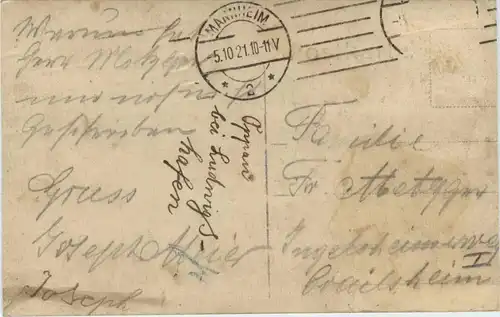 MANNHEIM
5.10.21.10-11V
* a *
Warum hat
Herr Metzger
mir noch
Geschrieben
Gruss
Joseph
Joseph
Oppau
bei Ludwigs-
hafen
Familie
Fr Metzger
Ingelsheimerweg
Crailsheim